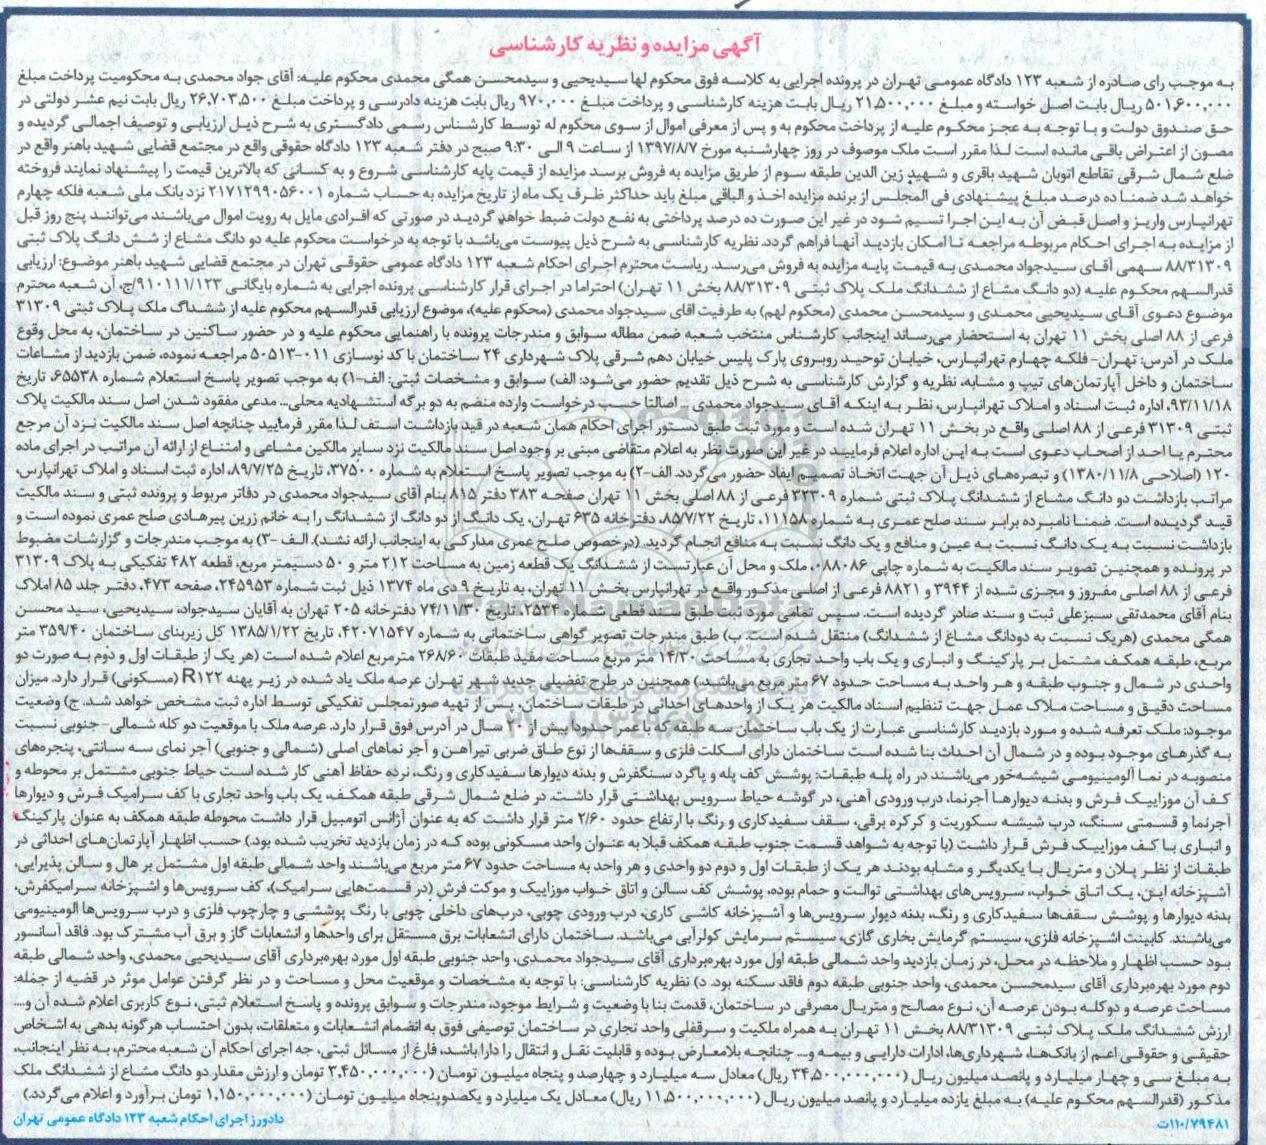 آگهی مزایده و نظریه کارشناسی
به موجب رای صادره از شعبه ۱۲۳ دادگاه عمومی تهران در پرونده اجرایی به کلاسه فوق محکوم لها سیدیحیی و سیدمحسن همگی محمدی محکوم علیه: آقای جواد محمدی به محکومیت پرداخت مبلغ
۵۰۱,۶۰۰,۰۰۰ ریال بابت اصل خواسته و مبلغ ۲۱,۵۰۰,۰۰۰ ریال بابت هزینه کارشناسی و پرداخت مبلغ ۹۷۰,۰۰۰ ریال بابت هزینه دادرسی و پرداخت مبلغ ۲۶,۷۰۳,۵۰۰ ریال بابت نیم عشر دولتی در
حق صندوق دولت و با توجه به عجز محکوم علیه از پرداخت محکوم به و پس از معرفی اموال از سوی محکوم له توسط کارشناس رسمی دادگستری به شرح ذیل ارزیابی و توصیف اجمالی گردیده و
مصون از اعتراض باقی مانده است لذا مقرر است ملک موصوف در روز چهارشنبه مورخ ۱۳۹۷/۸/۷ از ساعت ۹ الی ۹:۳۰ صبح در دفتر شعبه ۱۲۳ دادگاه حقوقی واقع در مجتمع قضایی شهید باهنر واقع در
ضلع شمال شرقی تقاطع اتوبان شهید باقری و شهید زین الدین طبقه سوم از طریق مزایده به فروش برسد مزایده از قیمت پایه کارشناسی شروع و به کسانی که بالاترین قیمت را پیشنهاد نمایند فروخته
خواهد شد ضمنا ده درصد مبلغ پیشنهادی فی المجلس از برنده مزایده اخذ و الباقی مبلغ باید حداکثر ظرف یک ماه از تاریخ مزایده به حساب شماره ۲۱۷۱۲۹۹۰۵۶۰۰۱ نزد بانک ملی شعبه فلکه چهارم
تهرانپارس واریز و اصل قبض آن به این اجرا تسیم شود در غیر این صورت ده درصد پرداختی به نفع دولت ضبط خواهد گردید در صورتی که افرادی مایل به رویت اموال می‌باشند می‌توانند پنج روز قبل
از مزایده به اجرای احکام مربوطه مراجعه تا امکان بازدید آنها فراهم گردد. نظریه کارشناسی به شرح ذیل پیوست می‌باشد با توجه به درخواست محکوم علیه دو دانگ مشاع از شش دانگ پلاک ثبتی
۸۸/۳۱۳۰۹ سهمی آقای سیدجواد محمدی به قیمت پایه مزایده به فروش می‌رسد. ریاست محترم اجرای احکام شعبه ۱۲۳ دادگاه عمومی حقوقی تهران در مجتمع قضایی شهید باهنر موضوع: ارزیابی
قدرالسهم محکوم علیه (دو دانگ مشاع از ششدانگ ملک پلاک ثبتی ۸۸/۳۱۳۰۹ بخش ۱۱ تهران) احتراما در اجرای قرار کارشناسی پرونده اجرایی به شماره بایگانی ۹۱۰۱۱۱/۱۲۳/ج، آن شعبه محترم
موضوع دعوی آقای سیدیحیی محمدی و سیدمحسن محمدی (محکوم لهم) به طرفیت آقای سیدجواد محمدی (محکوم علیه)، موضوع ارزیابی قدرالسهم محکوم علیه از ششداگ ملک پلاک ثبتی ۳۱۳۰۹
فرعی از ۸۸ اصلی بخش ۱۱ تهران به استحضار می‌رساند اینجانب کارشناس منتخب شعبه ضمن مطاله سوابق و مندرجات پرونده با راهنمایی محکوم علیه و در حضور ساکنین در ساختمان، به محل وقوع
ملک در آدرس: تهران- فلکه چهارم تهرانپارس، خیابان توحید روبروی پارک پلیس خیابان دهم شرقی پلاک شهرداری ۲۴ ساختمان با کد نوسازی ۰۱۱-۵۰۵۱۳ مراجعه نموده، ضمن بازدید از مشاعات
ساختمان و داخل آپارتمان‌های تیپ و مشابه، نظریه و گزارش کارشناسی به شرح ذیل تقدیم حضور می‌شود: الف) سوابق و مشخصات ثبتی: الف-۱) به موجب تصویر پاسخ استعلام شماره ۶۵۵۳۸، تاریخ
۹۳/۱۱/۱۸، اداره ثبت اسناد و املاک تهرانپارس، نظر به اینکه آقای سیدجواد محمدی _ اصالتا حسب درخواست وارده منضم به دو برگه استشهادیه محلی... مدعی مفقود شدن اصل سند مالکیت پلاک
ثبتی ۳۱۳۰۹ فرعی از ۸۸ اصلی واقع در بخش ۱۱ تهران شده است و مورد ثبت طبق دستور اجرای احکام همان شعبه در قید بازداشت استف لذا مقرر فرمایید چنانچه اصل سند مالکیت نزد آن مرجع
محترم یا احد از اصحاب دعوی است به این اداره اعلام فرمایید در غیر این صورت نظر به اعلام متقاضی مبنی بر وجود اصل سند مالکیت نزد سایر مالکین مشاعی و امتناع از ارائه آن مراتب در اجرای ماده
۱۲۰ (اصلاحی ۱۳۸۰/۱۱/۸) و تبصره‌های ذیل آن جهت اتخاذ تصمیم ایفاد حضور می‌گردد. الف-۲) به موجب تصویر پاسخ استعلام به شماره ۳۷۵۰۰، تاریخ ۸۹/۷/۲۵، اداره ثبت اسناد و املاک تهرانپارس،
مراتب بازداشت دو دانگ مشاع از ششدانگ پلاک ثبتی شماره ۳۲۳۰۹ فرعی از ۸۸ اصلی بخش ۱۱ تهران صفحه ۳۸۳ دفتر ۸۱۵ بنام آقای سیدجواد محمدی در دفاتر مربوط و پرونده ثبتی و سند مالکیت
قید گردیده است. ضمنا نامبرده برابر سند صلح عمری به شماره ۱۱۱۵۸، تاریخ ۸۵/۷/۲۲، دفترخانه ۶۳۵ تهران، یک دانگ از دو دانگ از ششدانگ را به خانم زرین پیرهادی صلح عمری نموده است و
بازداشت نسبت به یک دانگ نسبت به عین و منافع و یک دانگ نسبت به منافع انجام گردید. (درخصوص صلح عمری مدارکی به اینجانب ارائه نشد). الف -۳) به موجب مندرجات و گزارشات مضبوط
در پرونده و همچنین تصویر سند مالکیت به شماره چاپی ۰۸۸۰۸۶، ملک و محل آن عبارتست از ششدانگ یک قطعه زمین به مساحت ۲۱۲ متر و ۵۰ دسیمتر مربع، قطعه ۴۸۲ تفکیکی به پلاک ۳۱۳۰۹
فرعی از ۸۸ اصلی مفروز و مجزی شده از ۳۹۴۴ و ۸۸۲۱ فرعی از اصلی مذکور واقع در تهرانپارس بخش ۱۱ تهران، به تاریخ ۹ دی ماه ۱۳۷۴ ذیل ثبت شماره ۲۴۵۹۵۳، صفحه ۴۷۳، دفتر جلد ۸۵ املاک
بنام آقای محمدتقی سبزعلی ثبت و سند صادر گردیده است. سپس تمامی مورد ثبت طبق سند قطعی شماره ۲۵۳۴، تاریخ ۷۴/۱۱/۳۰ دفترخانه ۲۰۵ تهران به آقایان سیدجواد، سیدیحیی، سید محسن
همگی محمدی (هریک نسبت به دودانگ مشاع از ششدانگ) منتقل شده است. ب) طبق مندرجات تصویر گواهی ساختمانی به شماره ۴۲۰۷۱۵۴۷، تاریخ ۱۳۸۵/۱/۲۲ کل زیربنای ساختمان ۳۵۹/۴۰ متر
مربع، طبقه همکف مشتمل بر پارکینگ و انباری و یک باب واحد تجاری به مساحت ۱۴/۳۰ متر مربع مساحت مفید طبقات ۲۶۸/۶۰ مترمربع اعلام شده است (هر یک از طبقات اول و دوم به صورت دو
واحدی در شمال و جنوب طبقه و هر واحد به مساحت حدود ۶۷ متر مربع می‌باشد.) همچنین در طرح تفضیلی جدید شهر تهران عرصه ملک یاد شده در زیر پهنه R۱۲۲ (مسکونی) قرار دارد. میزان
مساحت دقیق و مساحت ملاک عمل جهت تنظیم اسناد مالکیت هر یک از واحدهای احداثی در طبقات ساختمان، پس از تهیه صورتمجلس تفکیکی توسط اداره ثبت مشخص خواهد شد. ج) وضعیت
موجود: ملک تعرفه شده و مورد بازدید کارشناسی عبارت از یک باب ساختمان سه طبقه که با عمر احدودا بیش از ۲۰ سال در آدرس فوق قرار دارد. عرصه ملک با موقعیت دو کله شمالی-جنوبی نسبت
به گذرهای موجود بوده و در شمال آن احداث بنا شده است ساختمان دارای اسکلت فلزی و سقف‌ها از نوع طاق ضربی تیرآهن و آجر نماهای اصلی (شمالی و جنوبی) آجر نمای سه سانتی، پنجره‌های
منصوبه در نما آلومینیومی شیشه‌خور می‌باشند در راه پله طبقات: پوشش کف پله و پاگرد سنگفرش و بدنه دیوارها سفیدکاری و رنگ، نرده حفاظ آهنی کار شده است حیاط جنوبی مشتمل بر محوطه و
کف آن موزاییک فرش و بدنه دیوارها آجرنما، درب ورودی آهنی، در گوشه حیاط سرویس بهداشتی قرار داشت. در ضلع شمال شرقی طبقه همکف، یک باب واحد تجاری با کف سرامیک فرش و دیوارها
آجرنما و قسمتی سنگ، درب شیشه سکوریت و کرکره برقی، سقف سفیدکاری و رنگ با ارتفاع حدود ۲/۶۰ متر قرار داشت که به عنوان آژانس اتومبیل قرار داشت محوطه طبقه همکف به عنوان پارکینگ
و انباری با کف موزاییک فرش قرار داشت (با توجه به شواهد قسمت جنوب طبقه همکف قبلا به عنوان واحد مسکونی بوده که در زمان بازدید تخریب شده بود) حسب اظهار آپارتمان‌های احداثی در
طبقات از نظر پلان و متریال با یکدیگر و مشابه بودند هر یک از طبقات اول و دوم دو واحدی و هر واحد به مساحت حدود ۶۷ متر مربع می‌باشند واحد شمالی طبقه اول مشتمل بر هال و سالن پذیرایی،
آشپزخانه اپن، یک اتاق خواب، سرویس‌های بهداشتی توالت و حمام بوده، پوشش کف سالن و اتاق خواب موزاییک و موکت فرش (در قسمت‌هایی سرامیک)، کف سرویس‌ها و اشپزخانه سرامیکفرش،
بدنه دیوارها و پوشش سقف‌ها سفیدکاری و رنگ، بدنه دیوار سرویس‌ها و آشپزخانه کاشی کاری، درب ورودی چوبی، درب‌های داخلی چوبی با رنگ پوششی و چارچوب فلزی و درب سرویس‌ها الومینیومی
می‌باشند. کابینت اشپزخانه فلزی، سیستم گرمایش بخاری گازی، سیستم سرمایش کولرآبی می‌باشد. ساختمان دارای انشعابات برق مستقل برای واحدها و انشعابات گاز و برق آب مشترک بود. فاقد آسانسور
بود حسب اظهار و ملاحظه در محل، در زمان بازدید واحد شمالی طبقه اول مورد بهره‌برداری آقای سیدجواد محمدی، واحد جنوبی طبقه اول مورد بهره‌برداری آقای سیدیحیی محمدی، واحد شمالی طبقه
دوم مورد بهره‌برداری آقای سیدمحسن محمدی، واحد جنوبی طبقه دوم فاقد سکنه بود. د) نظریه کارشناسی: با توجه به مشخصات و موقعیت محل و مساحت و در نظر گرفتن عوامل موثر در قضیه از جمله:
مساحت عرصه و دوکله بودن عرصه آن، نوع مصالح و متریال مصرفی در ساختمان، قدمت بنا با وضعیت و شرایط موجود، مندرجات و سوابق پرونده و پاسخ استعلام ثبتی، نوع کاربری اعلام شده آن و....
ارزش ششدانگ ملک پلاک ثبتی ۸۸/۳۱۳۰۹ بخش ۱۱ تهران به همراه ملکیت و سرقفلی واحد تجاری در ساختمان توصیفی فوق به انضمام انشعابات و متعلقات، بدون احتساب هرگونه بدهی به اشخاص
حقیقی و حقوقی اعم از بانک‌ها، شهرداری‌ها، ادارات دارایی و بیمه و... چنانچه بلامعارض بوده و قابلیت نقل و انتقال را دارا باشد، فارغ از مسائل ثبتی، جه اجرای احکام آن شعبه محترم، به نظر اینجانب،
به مبلغ سی و چهار میلیارد و پانصد میلیون ریال (۳۴,۵۰۰,۰۰۰,۰۰۰ ریال) معادل سه میلیارد و چهارصد و پنجاه میلیون تومان (۳,۴۵۰,۰۰۰,۰۰۰ تومان و ارزش مقدار دو دانگ مشاع از ششدانگ ملک
مذکور (قدرالسهم محکوم علیه) به مبلغ یازده میلیارد و پانصد میلیون ریال (۱۱,۵۰۰,۰۰۰,۰۰۰ ریال) معادل یک میلیارد و یکصدوپنجاه میلیون تومان (۱,۱۵۰,۰۰۰,۰۰۰ تومان برآورد و اعلام می‌گردد.)
۱۱۰/۷۹۴۸۱ت دادورز اجرای احکام شعبه ۱۲۳ دادگاه عمومی تهران